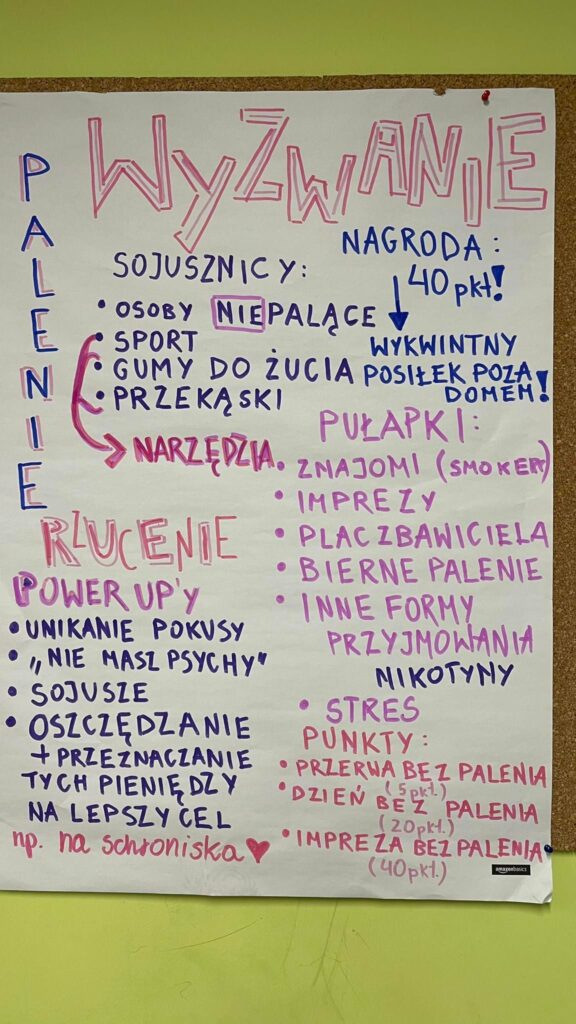 WYZWANIE
PALENIE
RZUCENIE
SOJUSZNICY:
• OSOBY NIEPALĄCE
• SPORT
• GUMY DO ŻUCIA
• PRZEKĄSKI
NARZĘDZIA
NAGRODA:
40 pkt!
WYKWINTNY
POSIŁEK POZA
DOMEM!
PUŁAPKI:
• ZNAJOMI (SMOKERY)
• IMPREZY
• PLAC ZBAWICIELA
• BIERNE PALENIE
• INNE FORMY
PRZYJMOWANIA
NIKOTYNY
• STRES
POWER UP'Y
• UNIKANIE POKUSY
• „NIE MASZ PSYCHY"
• SOJUSZE
• OSZCZĘDZANIE
+ PRZEZNACZANIE
TYCH PIENIĘDZY
NA LEPSZY CEL
np. na schroniska ♥
PUNKTY:
• PRZERWA BEZ PALENIA
(5pkt.)
• DZIEŃ BEZ PALENIA
(20pkt.)
• IMPREZA BEZ PALENIA
(40pkt.)
amazonbasics